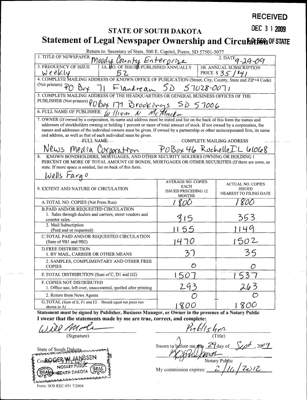 RECEIVED
DEC 31 2009
STATE OF SOUTH DAKOTA
Statement of Legal Newspaper Ownership and Circulation
OF STATE
Return to: Secretary of State, 500 E. Capitol, Pierre, SD 57501-5077
1. TITLE OF NEWSPAPER Moody County Enterprise
2. DATE 9-29-09
3. FREQUENCY OF ISSUE Weekly
3A. NO. OF ISSUES PUBLISHED ANNUALLY 52
3B. ANNUAL SUBSCRIPTION PRICE $ 35/$41
4. COMPLETE MAILING ADDRESS OF KNOWN OFFICE OF PUBLICATION (Street, City, County, State and ZIP+4 Code) (Not printers)
PO Box 71 Flandreau SD 57028-0071
5. COMPLETE MAILING ADDRESS OF THE HEADQUARTERS OR GENERAL BUSINESS OFFICES OF THE PUBLISHER (Not printers) PO Box 177 Brookings SD 57006
6. FULL NAME OF PUBLISHER: William
7. OWNER (If owned by a corporation, its name and address must be stated and also immediately thereafter the names and addresses of stockholders owning or holding 1 percent or more of total amount of stock. If not owned by a corporation, the names and addresses of the individual owners must be given. If owned by a partnership or other unincorporated firm, its name and address, as well as that of each individual must be given.
FULL NAME
COMPLETE MAILING ADDRESS
News Media Corporation
PO Box 46 Rochelle IL 61068
8. KNOWN BONDHOLDERS, MORTGAGEES, AND OTHER SECURITY HOLDERS OWNING OR HOLDING 1 PERCENT OR MORE OF TOTAL AMOUNT OF BONDS, MORTGAGES OR OTHER SECURITIES (If there are none, so state. If more space is needed, list on back of this form.
Wells Fargo
9. EXTENT AND NATURE OF CIRCULATION
AVERAGE NO. COPIES EACH ISSUED PRECEDING 12 MONTHS
ACTUAL NO. COPIES ISSUED NEAREST TO FILING DATE
A. TOTAL NO. COPIES (Net Press Run) 1800 1800
B. PAID AND/OR REQUESTED CIRCULATION
1. Sales through dealers and carriers, street vendors and counter sales 315 353
2. Mail Subscription (Paid and or requested) 1155 1149
C. TOTAL PAID AND/OR REQUESTED CIRCULATION (Sum of 9B1 and 9B2) 1470 1502
D. FREE DISTRIBUTION
1. BY MAIL, CARRIER OR OTHER MEANS 37 35
2. SAMPLES, COMPLIMENTARY AND OTHER FREE COPIES 0 0
E. TOTAL DISTRIBUTION (Sum of C, D1 and D2) 1507 1537
F. COPIES NOT DISTRIBUTED
1. Office use, left over, unaccounted, spoiled after printing 293 263
2. Return from News Agents 0 0
G. TOTAL (Sum of E, F1 and F2 - Should equal net press run shown in A) 1800 1800
Statement must be signed by Publisher, Business Manager, or Owner in the presence of a Notary Public
I swear that the statements made by me are true, correct, and complete:
(Signature)
Publisher
(Title)
State of South Dakota
Sworn to before me this 29 day of Sept, 2009
ROGER W. JANSSEN
NOTARY PUBLIC
SOUTH DAKOTA
SEAL
SEAL
Notary Public
My commission expires: 2/16/2012
Form: SOS REC 051 7/2004